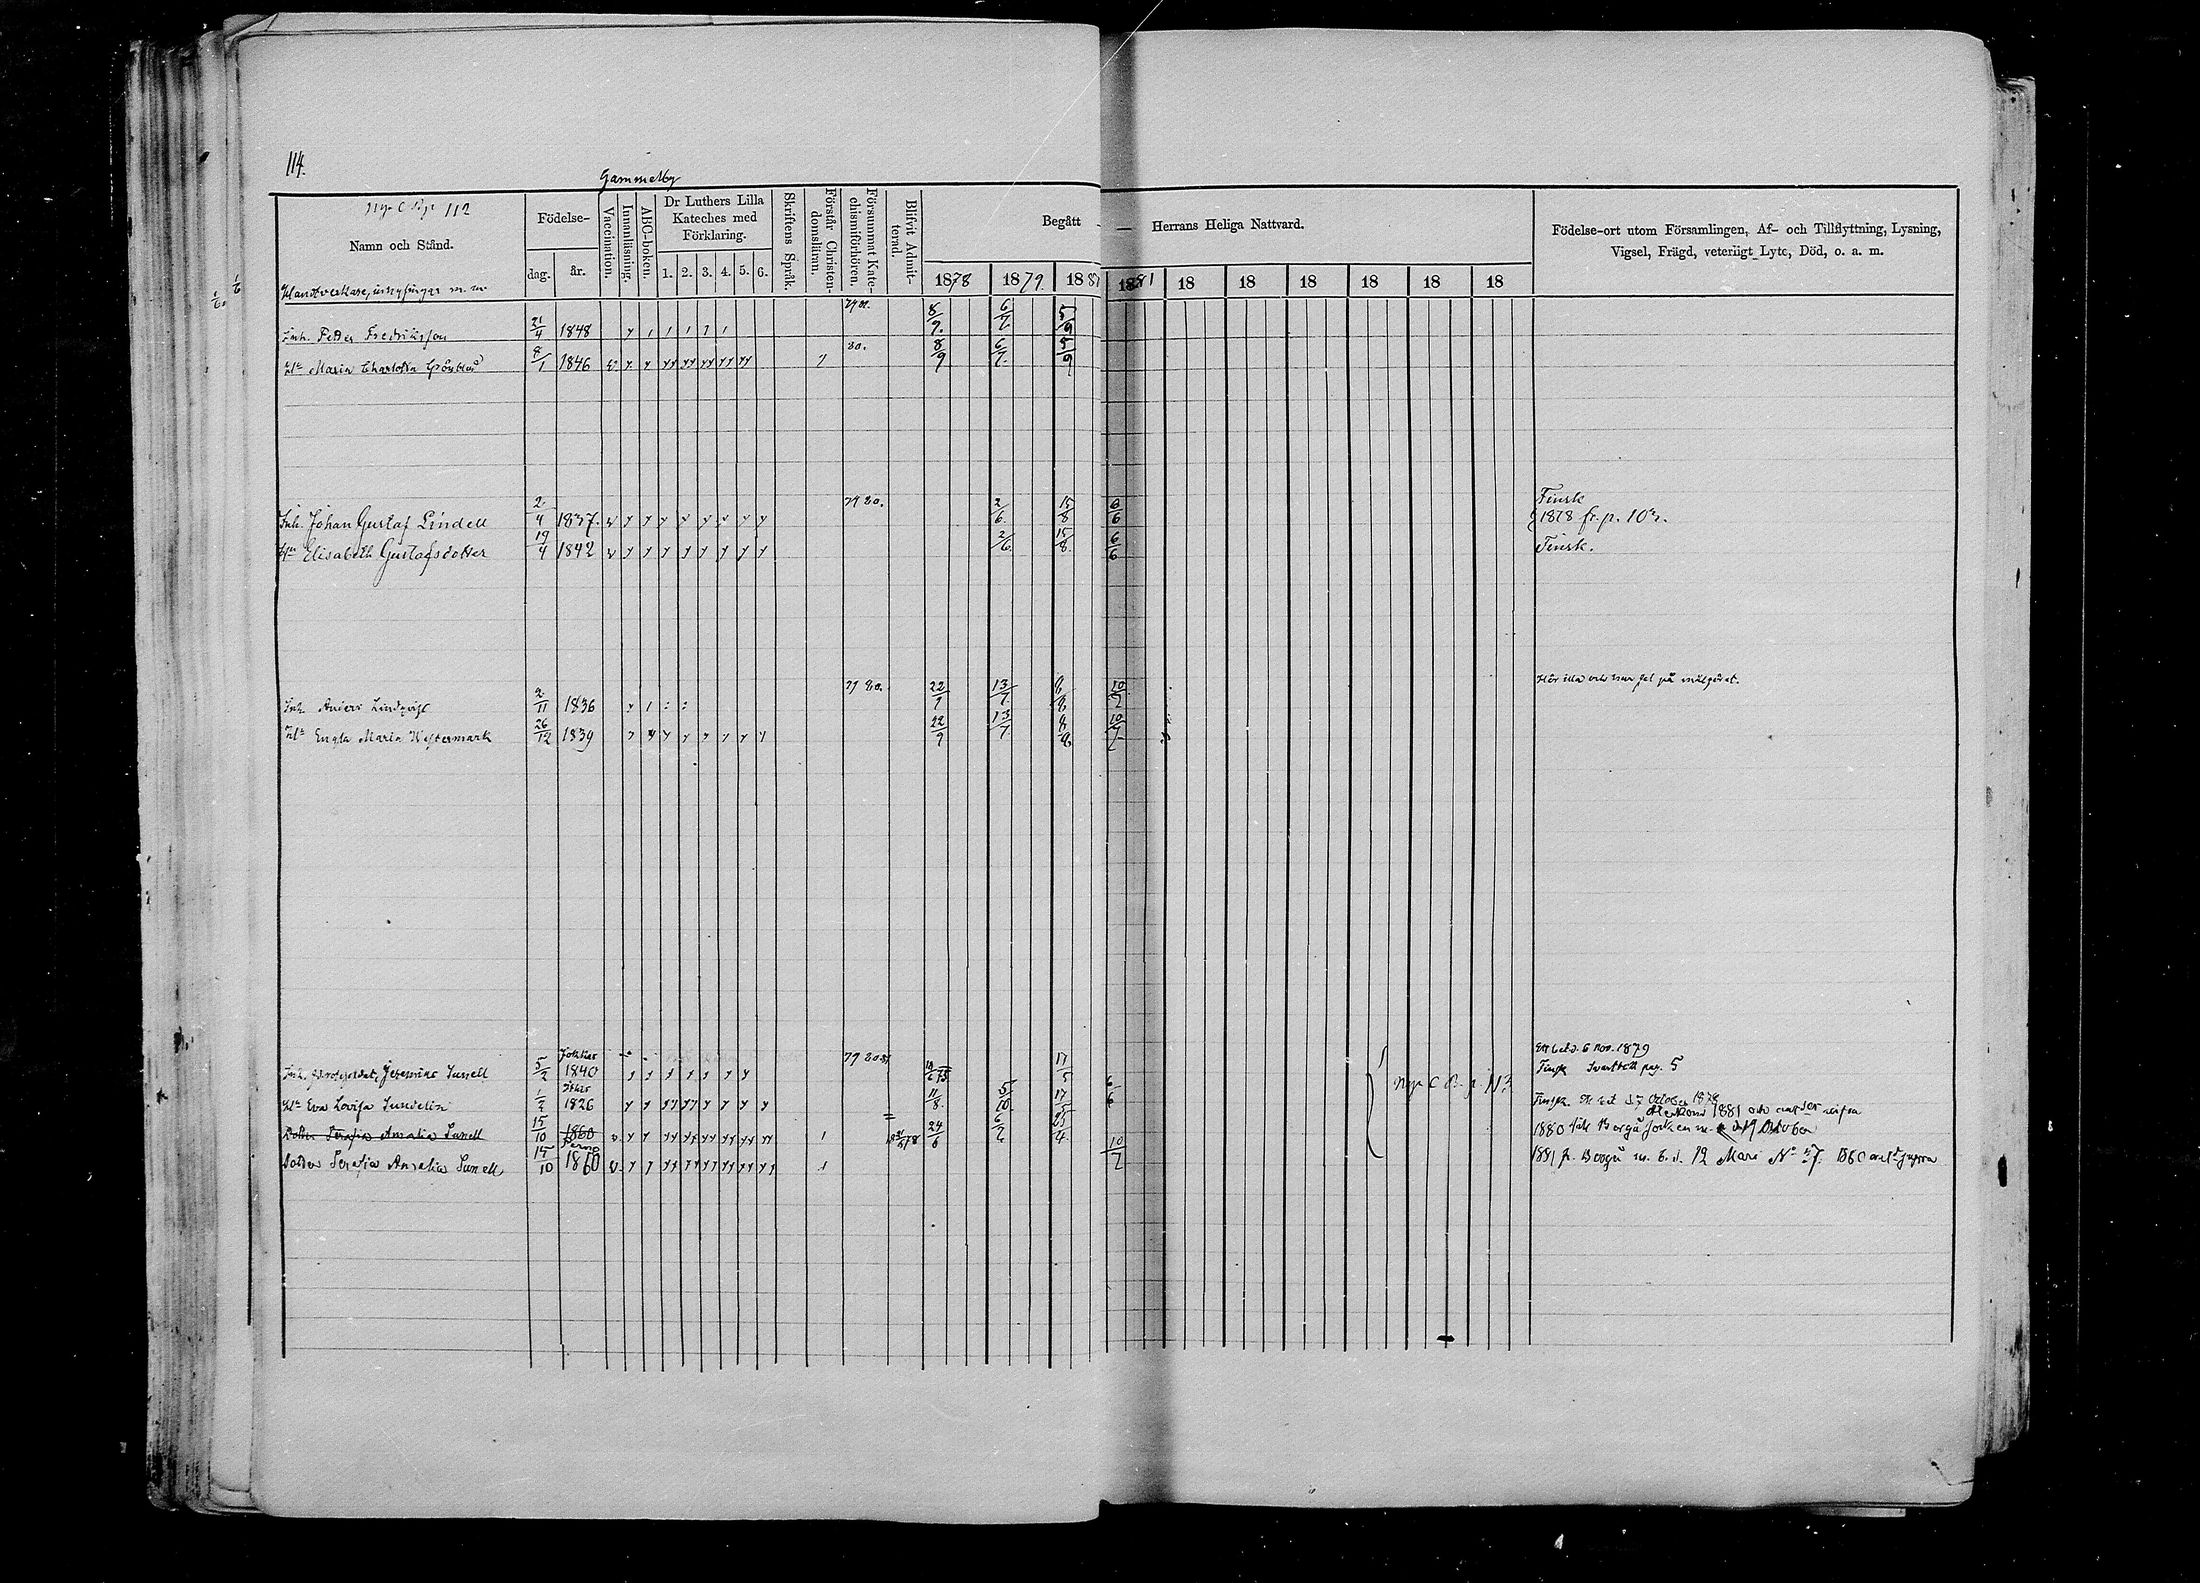 114.
Gammelby
Nya C B p. 112
Namn och Stånd.
Födelse-
dag.
år.
Vaccination.
Innanläsning.
ABC-boken.
Dr Luthers Lilla
Kateches med
Förklaring.
1. 2. 3. 4. 5. 6.
Skriftens Språk.
Förstår Christen-
domsläran.
Försummat Kate-
chismiförhören.
Blifvit Admit-
terad.
Begått — Herrans Heliga Nattvard.
1878 1879 188 1881 18 18 18 18 18 18
Födelse-ort utom Församlingen, Af- och Tillflyttning, Lysning,
Vigsel, Frägd, veterligt Lyte, Död, o. a. m.
Handtverkare, inhysingar m. m.
Inh. Petter Fredriksson 21/4 1848 8/9. 6/7 5/9
H:u Maria Charlotta Grönblad 8/1 1846 80. 8/9 6/7. 5/9
Inh. Johan Gustaf Lindell 2/4 1837. 79 80. 2/6. 15/8 6/6 Finsk
1878 fr. p. 102.
H:u Elisabeth Gustafsdotter 19/4 1842 2/6. 15/8. 6/6 Finsk.
Inh. Anders Lindqvist 2/11 1836 79 80. 22/9 13/7 8/8 10/7
Hör illa och har fel på målföret.
H:u Engla Maria Westermark 26/12 1839 22/9 13/7 8/8 10/7
Inh. Jeremias Sunell 5/2 1840 79 80 81 17/5
6 nov. 1879
Finsk Svartbäck pag. 5
H:u Eva Lovisa Sundelin 1/2 1826 11/8. 5/10. 17/5 6/6
Nya C B. p. N3
Finsk October 1878
Dotter Serafia Amalia Sunell 15/10 1860 24/6 6/7 25/4
1880 till Borgå
Dotter Serafia Amalia Sunell 15/10 Perno 1860 10/7
1881 fr. Borgå m. b. d. 12 Mars N:o 27.